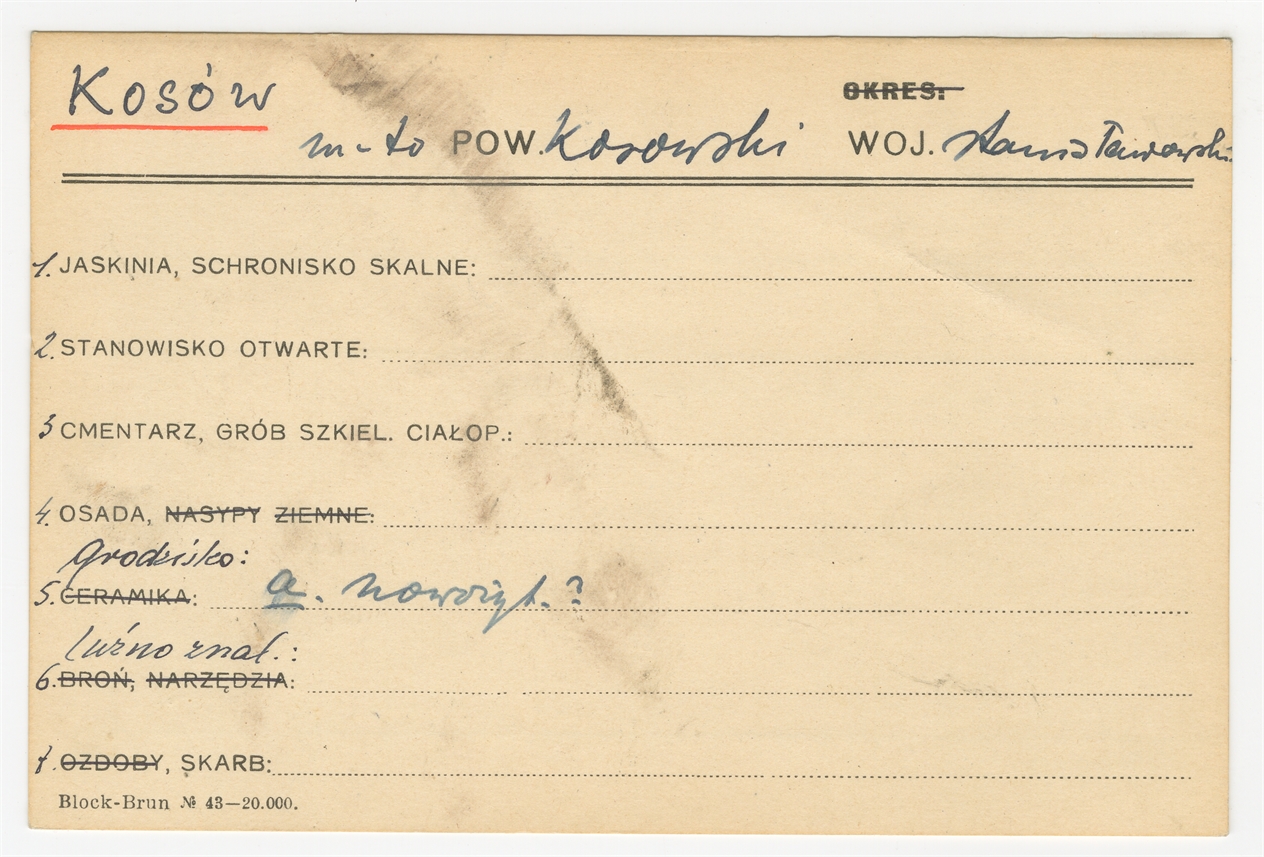 Kosów
OKRES:
m-to POW. Kosowski WOJ. stanisławowski
1. JASKINIA, SCHRONISKO SKALNE:
2. STANOWISKO OTWARTE:
3 CMENTARZ, GRÓB SZKIEL. CIAŁOP.:
4. OSADA, NASYPY ZIEMNE:
Grodzisko:
5. CERAMIKA: a. nowożyt.?
luźno znal.:
6. BROŃ, NARZĘDZIA:
7. OZDOBY, SKARB:
Block-Brun № 43—20.000.